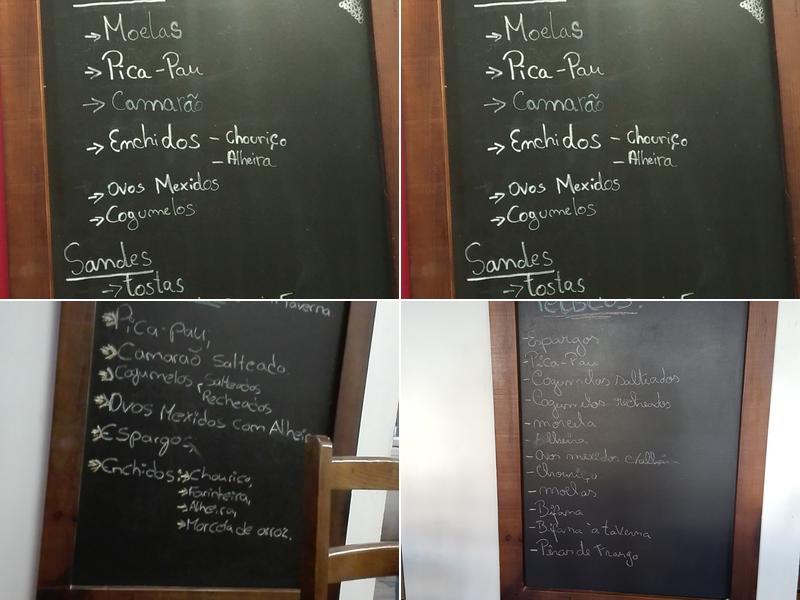 → Moelas
→ Pica-Pau
→ Camarão
→ Enchidos - Chouriço
- Alheira
→ Ovos Mexidos
→ Cogumelos
Sandes
→ tostas
→ Moelas
→ Pica-Pau
→ Camarão
→ Enchidos - Chouriço
- Alheira
→ Ovos Mexidos
→ Cogumelos
Sandes
→ tostas
Taverna
→ Pica-pau,
→ Camarão Salteado.
→ Cogumelos, Salteados
Recheados
→ Ovos Mexidos com Alheir
→ Espargos
→ Enchidos: → Chouriço,
→ Farinheira,
→ Alheira,
→ Morcela de arroz.
- Espargos
- Pica-Pau
- Cogumelos saltiados
- Cogumelos recheados
- morcela
- Alheira
- Ovos mexidos c/alheira
- Chouriço
- moelas
- Bifana
- Bifana à taverna
- Peras de Frango